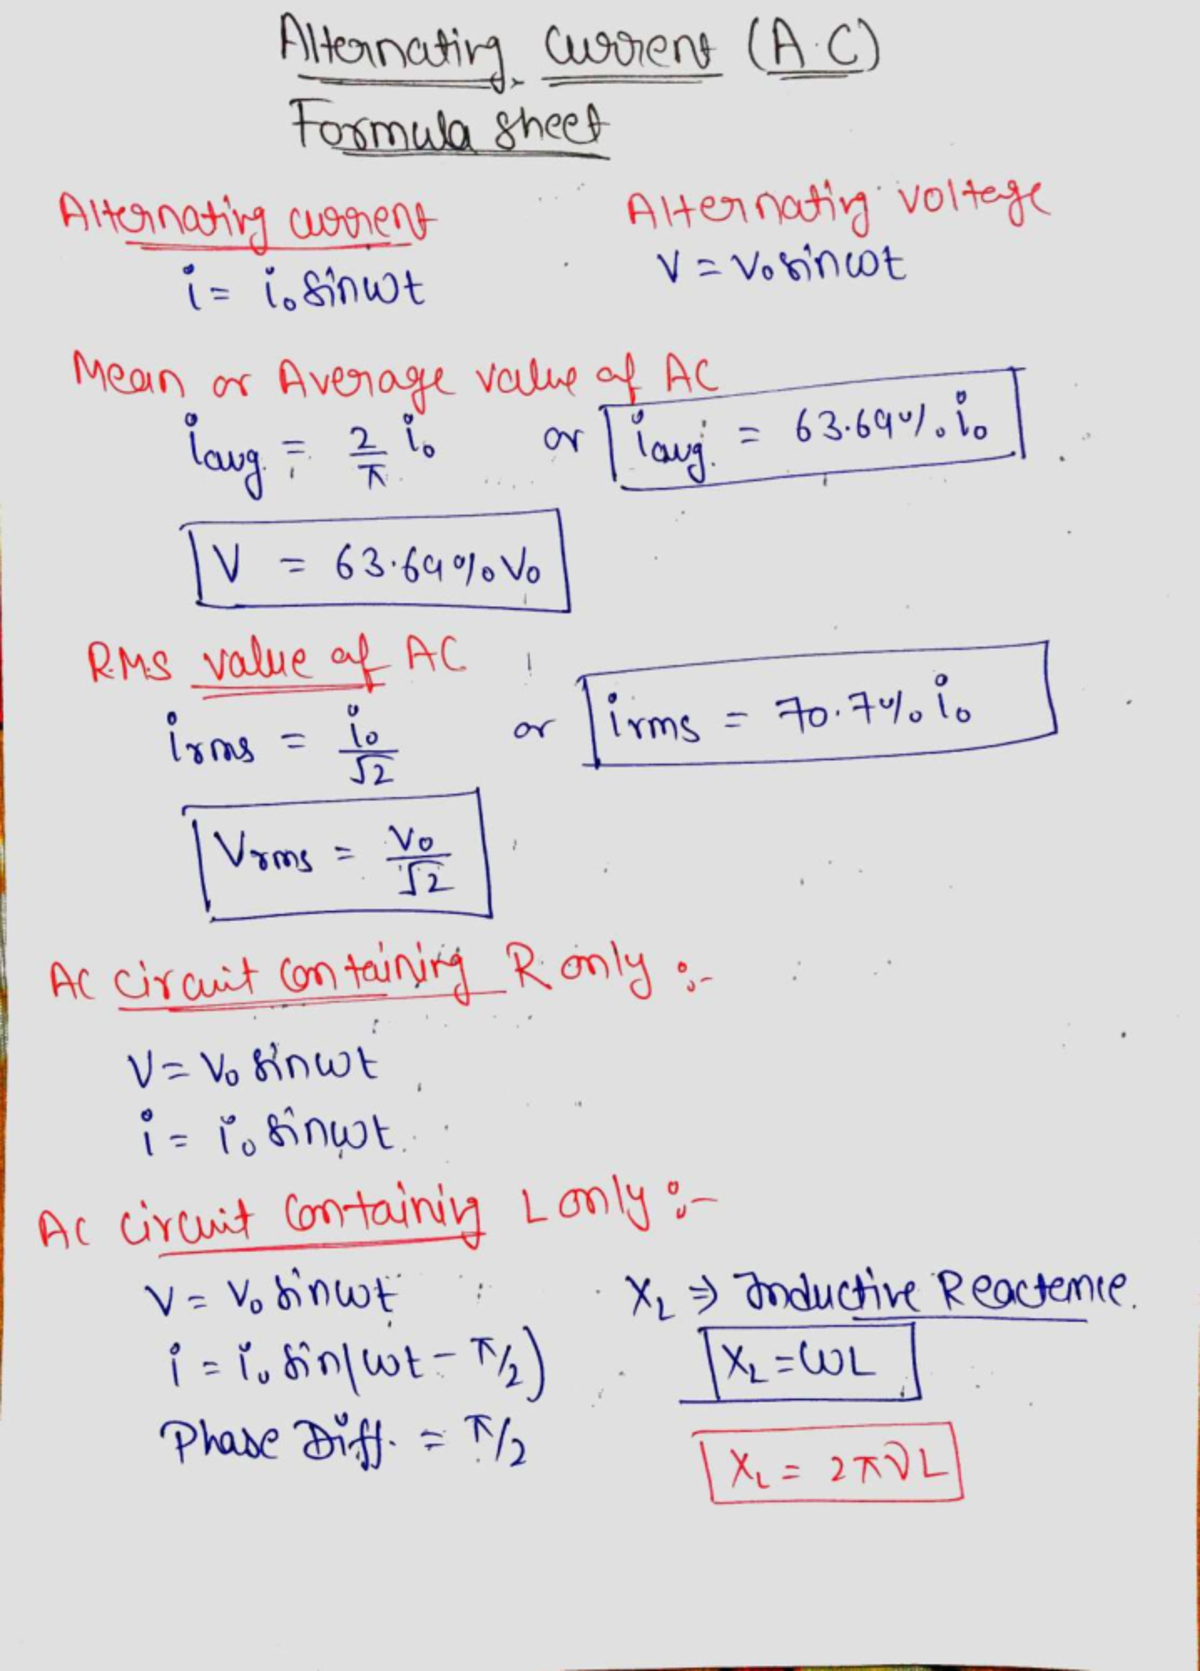 Alternating Current (A.C)
Formula sheet
Alternating current
Alternating voltage
i = i₀ sinωt
V = V₀ sinωt
Mean or Average value of AC
iavg. = 2/π i₀ or iavg. = 63.69% i₀
V = 63.69% V₀
R.M.S value of AC
irms = i₀/√2 or irms = 70.7% i₀
Vrms = V₀/√2
AC circuit containing R only :-
V = V₀ sinωt
i = i₀ sinωt
AC circuit containing L only :-
V = V₀ sinωt
X_L ⇒ Inductive Reactence.
i = i₀ sin(ωt - π/2)
X_L = ωL
Phase Diff. = π/2
X_L = 2πνL